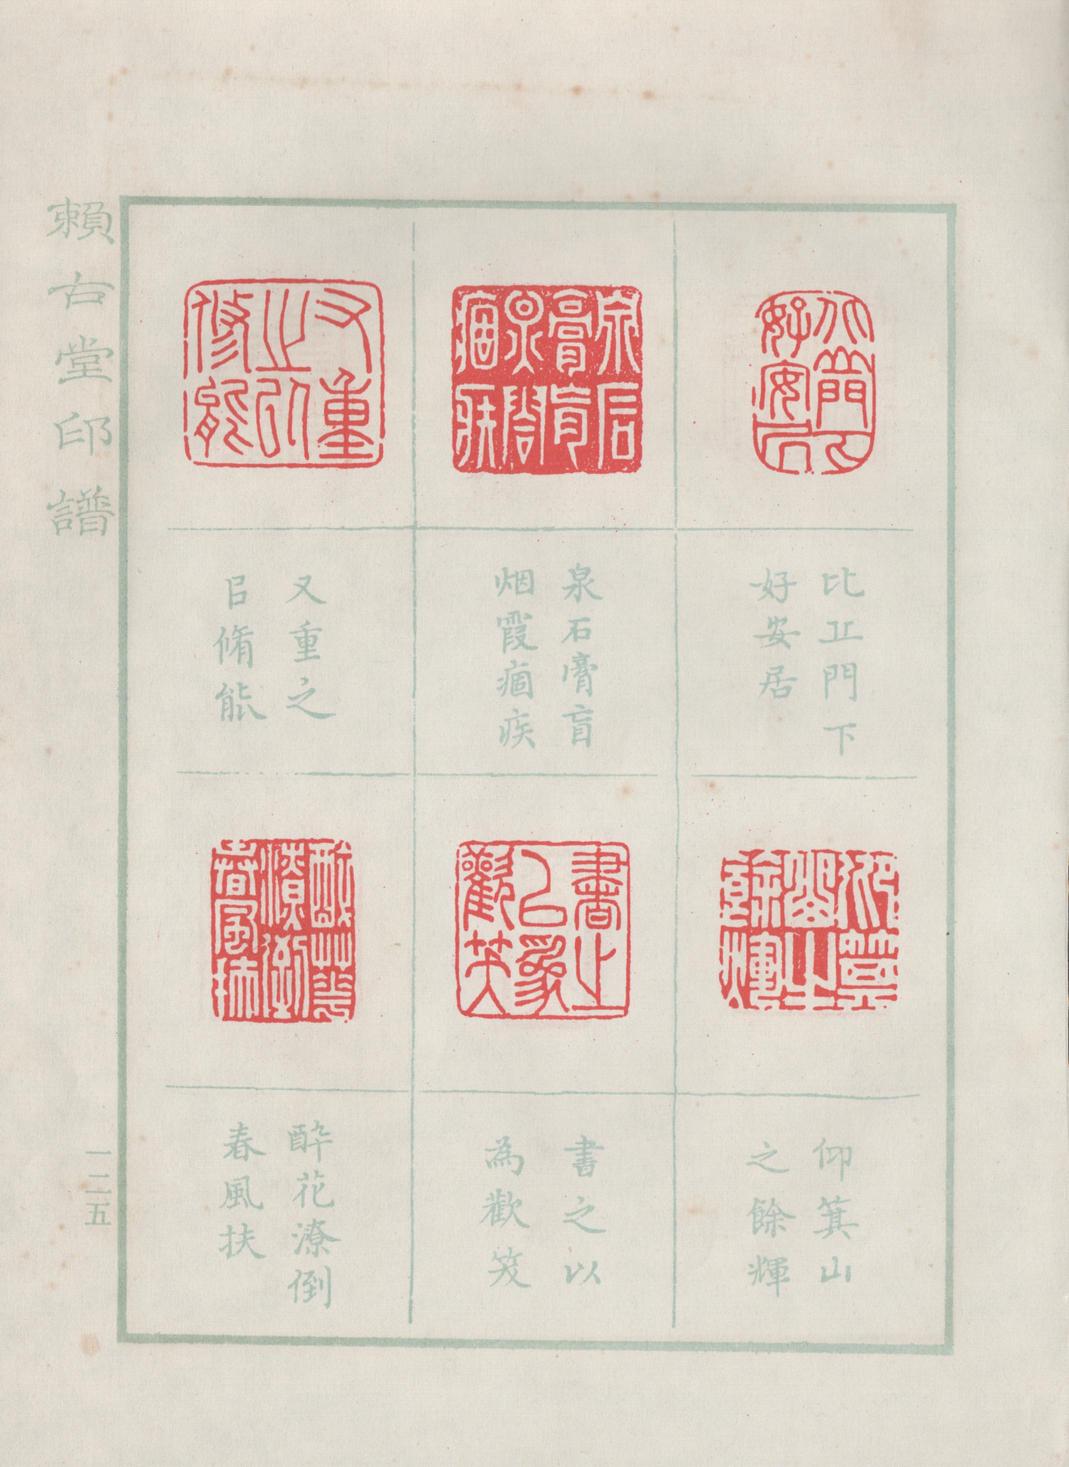 比㐀門下
好安居
泉石膏肓
烟霞痼疾
又重之
㠯脩能
仰箕山
之餘輝
書之以
為歡笑
醉花潦倒
春風扶
賴古堂印譜
一二五